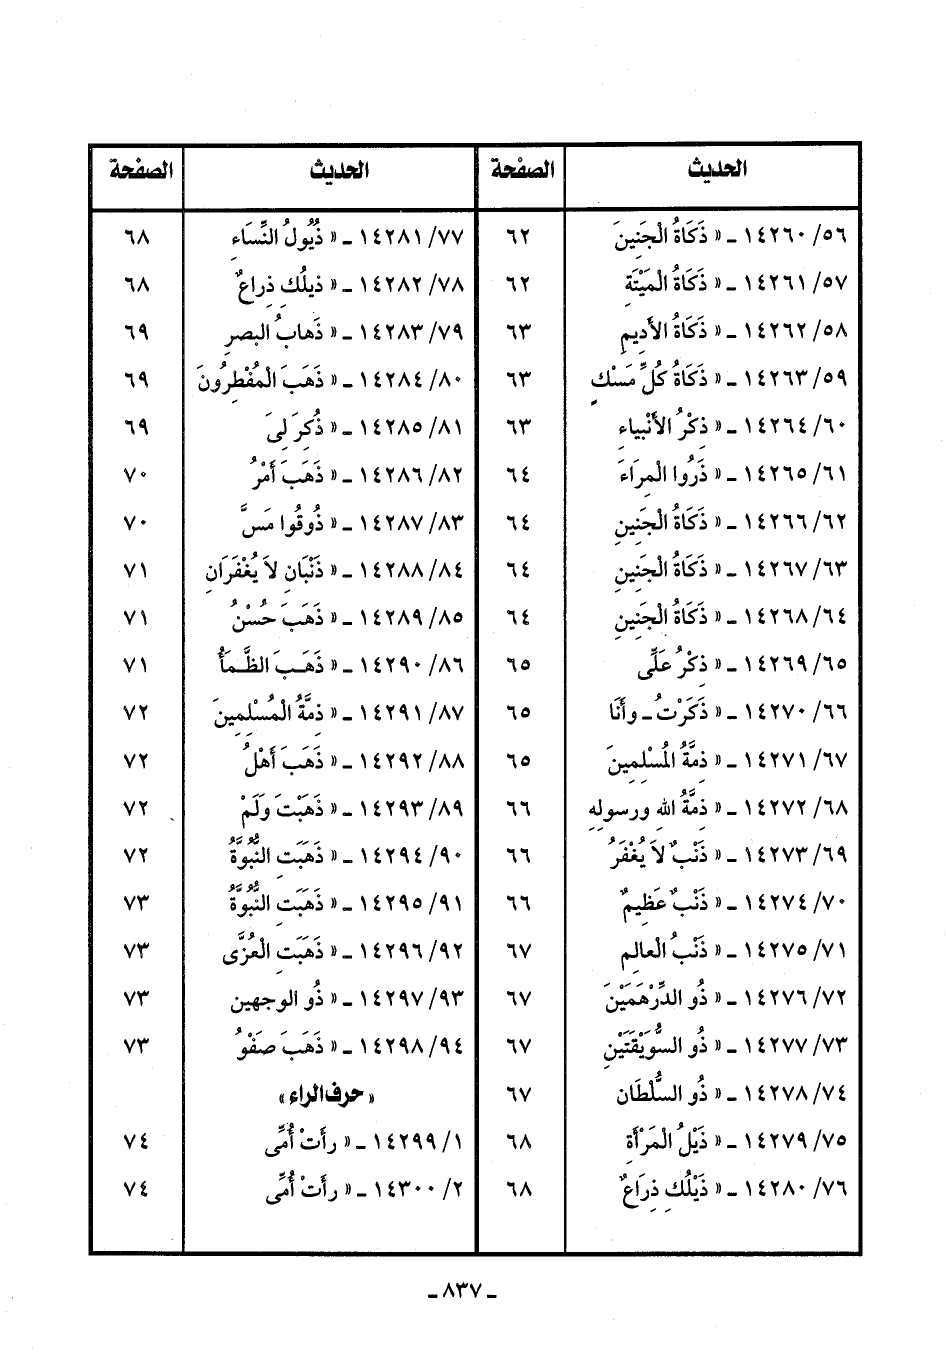 الحديث الصفحة
٥٦/ ١٤٢٦٠ ـ « ذَكَاةُ الْجَنِينَ ٦٢
٥٧/ ١٤٢٦١ ـ « ذَكَاةُ الْمَيْتَةِ ٦٢
٥٨/ ١٤٢٦٢ ـ « ذَكَاةُ الأَدِيمِ ٦٣
٥٩/ ١٤٢٦٣ ـ « ذَكَاةُ كُلِّ مَسْكٍ ٦٣
٦٠/ ١٤٢٦٤ ـ « ذِكْرُ الأَنْبياءِ ٦٣
٦١/ ١٤٢٦٥ ـ « ذَرُوا الْمِرَاءَ ٦٤
٦٢/ ١٤٢٦٦ ـ « ذَكَاةُ الْجَنِينِ ٦٤
٦٣/ ١٤٢٦٧ ـ « ذَكَاةُ الْجَنِينِ ٦٤
٦٤/ ١٤٢٦٨ ـ « ذَكَاةُ الْجَنِينِ ٦٤
٦٥/ ١٤٢٦٩ ـ « ذِكْرُ عَلَىٍّ ٦٥
٦٦/ ١٤٢٧٠ ـ « ذَكَرْتُ ـ وأَنَا ٦٥
٦٧/ ١٤٢٧١ ـ « ذِمَّةُ الْمُسْلِمِينَ ٦٥
٦٨/ ١٤٢٧٢ ـ « ذِمَّةُ اللهِ ورسولِهِ ٦٦
٦٩/ ١٤٢٧٣ ـ « ذَنْبٌ لاَ يُغْفَرُ ٦٦
٧٠/ ١٤٢٧٤ ـ « ذَنْبٌ عَظِيمٌ ٦٦
٧١/ ١٤٢٧٥ ـ « ذَنْبُ الْعالِمِ ٦٧
٧٢/ ١٤٢٧٦ ـ « ذُو الدِّرْهَمَيْنَ ٦٧
٧٣/ ١٤٢٧٧ ـ « ذُو السُّوَيْقَتَيْنِ ٦٧
٧٤/ ١٤٢٧٨ ـ « ذُو السُّلْطَان ٦٧
٧٥/ ١٤٢٧٩ ـ « ذَيْلُ الْمَرْأَةِ ٦٨
٧٦/ ١٤٢٨٠ ـ « ذَيْلُكِ ذِرَاعٌ ٦٨
الحديث الصفحة
٧٧/ ١٤٢٨١ ـ « ذُيُولُ النِّسَاءِ ٦٨
٧٨/ ١٤٢٨٢ ـ « ذيلُكِ ذِراعٌ ٦٨
٧٩/ ١٤٢٨٣ ـ « ذَهابُ البصرِ ٦٩
٨٠/ ١٤٢٨٤ ـ « ذَهَبَ الْمُفْطِرُونَ ٦٩
٨١/ ١٤٢٨٥ ـ « ذُكِرَ لِىَ ٦٩
٨٢/ ١٤٢٨٦ ـ « ذَهَبَ أَمْرُ ٧٠
٨٣/ ١٤٢٨٧ ـ « ذُوقُوا مَسَّ ٧٠
٨٤/ ١٤٢٨٨ ـ « ذَنْبَانِ لاَ يُغْفَرَانِ ٧١
٨٥/ ١٤٢٨٩ ـ « ذَهَبَ حُسْنُ ٧١
٨٦/ ١٤٢٩٠ ـ « ذَهَـبَ الظَّـمَأُ ٧١
٨٧/ ١٤٢٩١ ـ « ذِمَّةُ الْمُسْلِمِينَ ٧٢
٨٨/ ١٤٢٩٢ ـ « ذَهَبَ أَهْلُ ٧٢
٨٩/ ١٤٢٩٣ ـ « ذَهَبْتَ وَلَمْ ٧٢
٩٠/ ١٤٢٩٤ ـ « ذَهَبَتِ النُّبُوَّةُ ٧٢
٩١/ ١٤٢٩٥ ـ « ذَهَبَتِ النُّبُوَّةُ ٧٣
٩٢/ ١٤٢٩٦ ـ « ذَهَبَتِ الْعُزَّى ٧٣
٩٣/ ١٤٢٩٧ ـ « ذُو الوجهين ٧٣
٩٤/ ١٤٢٩٨ ـ « ذَهَبَ صَفْوُ ٧٣
« حرف الراء »
١/ ١٤٢٩٩ ـ « رأَتْ أُمِّى ٧٤
٢/ ١٤٣٠٠ ـ « رأَتْ أُمِّى ٧٤
ـ ٨٣٧ ـ